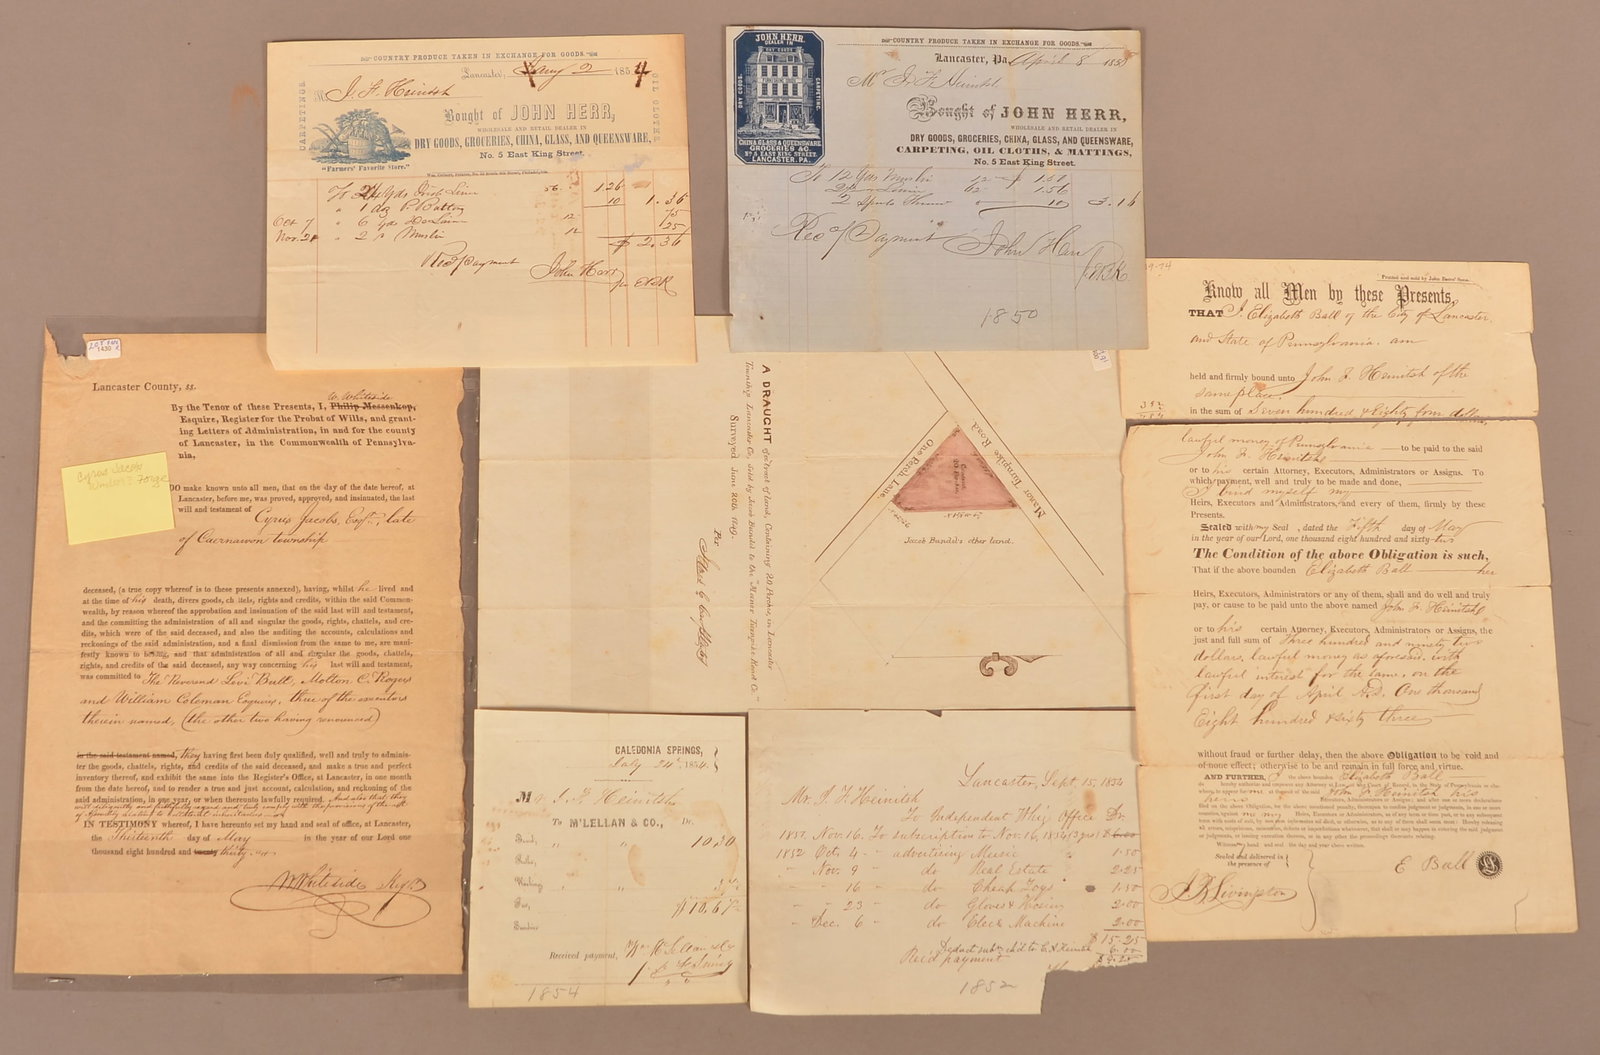 COUNTRY PRODUCE TAKEN IN EXCHANGE FOR GOODS.
Lancaster, Jany 2 1854
J. F. Heinitsh
CARPETINGS
OIL CLOTHS
Bought of JOHN HERR,
WHOLESALE AND RETAIL DEALER IN
DRY GOODS, GROCERIES, CHINA, GLASS, AND QUEENSWARE,
No. 5 East King Street.
"Farmers' Favorite Store."
To 2¼ Yds Irish Linen 56 1.26
" 1 doz P. Buttons 10 1.36
Oct 7 " 6 yds 12 75
Nov. 21 " 2 " Muslin 12 25
$ 2.36
Rec'd payment John Herr
per EBR
JOHN HERR.
DEALER IN
DRY GOODS.
CARPETING.
CHINA GLASS & QUEENSWARE
GROCERIES &C.
No. 5 EAST KING STREET.
LANCASTER, PA.
COUNTRY PRODUCE TAKEN IN EXCHANGE FOR GOODS.
Lancaster, Pa. April 8 185
Mr J. F. Heinitsh
Bought of JOHN HERR,
WHOLESALE AND RETAIL DEALER IN
DRY GOODS, GROCERIES, CHINA, GLASS, AND QUEENSWARE,
CARPETING, OIL CLOTHS, & MATTINGS,
No. 5 East King Street.
To 12 Yds Muslin 12
Linen 62 1.56
2 Spools Thread 10 3.16
Rec'd Payment John Herr
1850
Lancaster County, ss.
W. Whiteside
By the Tenor of these Presents, I, Philip Messenkop,
Esquire, Register for the Probat of Wills, and grant-
ing Letters of Administration, in and for the county
of Lancaster, in the Commonwealth of Pennsylva-
nia,
Cyrus Jacobs
Forge
DO make known unto all men, that on the day of the date hereof, at
Lancaster, before me, was proved, approved, and insinuated, the last
will and testament of Cyrus Jacobs, Esqr., late
of Caernarvon township
deceased, (a true copy whereof is to these presents annexed), having, whilst he lived and
at the time of his death, divers goods, chattels, rights and credits, within the said Common-
wealth, by reason whereof the approbation and insinuation of the said last will and testament,
and the committing the administration of all and singular the goods, rights, chattels, and cre-
dits, which were of the said deceased, and also the auditing the accounts, calculations and
reckonings of the said administration, and a final dismission from the same to me, are mani-
festly known to belong, and that administration of all and singular the goods, chattels,
rights, and credits of the said deceased, any way concerning his last will and testament,
was committed to The Reverend Levi Bull, Molton C. Rogers
and William Coleman Esquires, three of the executors
therein named, (the other two having renounced)
in the said testament named, they having first been duly qualified, well and truly to adminis-
ter the goods, chattels, rights, and credits of the said deceased, and make a true and perfect
inventory thereof, and exhibit the same into the Register's Office, at Lancaster, in one month
from the date hereof, and to render a true and just account, calculation, and reckoning of the
said administration, in one year, or when thereunto lawfully required. And also that they
will diligently and faithfully regard and well comply with the provisions of the act
of Assembly relating to collateral inheritances
IN TESTIMONY whereof, I have hereunto set my hand and seal of office, at Lancaster,
the Thirteenth day of May in the year of our Lord one
thousand eight hundred and twenty thirty
W Whiteside Regr
A DRAUGHT of a tract of land, Containing 20 Perches, in Lancaster
Township Lancaster Co., Sold by Jacob Bundel to the "Manor Turnpike Road Co."
Surveyed June 20th 1859.
Per
One Perch Lane.
Manor Turnpike Road.
Content
20 Perches
Jacob Bundel's other land.
Printed and sold by John Bears' Sons.
Know all Men by these Presents,
THAT I, Elizabeth Ball of the City of Lancaster,
and State of Pennsylvania, am
held and firmly bound unto John F. Heinitsh of the
same place,
in the sum of Seven hundred & Eighty four dollars
lawful money of Pennsylvania to be paid to the said
John F. Heinitsh
or to his certain Attorney, Executors, Administrators or Assigns. To
which payment, well and truly to be made and done,
I bind myself my
Heirs, Executors and Administrators, and every of them, firmly by these
Presents.
Sealed with my Seal, dated the Fifth day of May
in the year of our Lord, one thousand eight hundred and sixty-two
The Condition of the above Obligation is such,
That if the above bounden Elizabeth Ball her
Heirs, Executors, Administrators or any of them, shall and do well and truly
pay, or cause to be paid unto the above named John F. Heinitsh
or to his certain Attorney, Executors, Administrators or Assigns, the
just and full sum of Three hundred and ninety two
dollars, lawful money as aforesaid, with
lawful interest for the same, on the
first day of April A.D. One thousand
Eight hundred & sixty three
without fraud or further delay, then the above Obligation to be void and
of none effect; otherwise to be and remain in full force and virtue.
AND FURTHER, I the above bounden Elizabeth Ball
John F. Heinitsh his
heirs
Sealed and delivered in
the presence of
E Ball
J. B. Livingston
CALEDONIA SPRINGS,
July 24th 1854.
Mr J. F. Heinitsh
To M'LELLAN & CO., Dr.
Board, " " 10.30
Washing
$ 10.67
Received payment, Wm McLellan & Co
1854
Lancaster, Sept. 15, 1854
Mr. J. F. Heinitsh
To Independent Whig Office Dr.
1851. Nov. 16. To subscription to Nov. 16, 1854, 3 years $6.00
1852 Oct. 4 - advertising Music 1.50
" Nov. 9 - do Real Estate 2.25
" " 16 - do Cheap Toys 1.50
" " 23 - do Gloves & Hosiery 2.00
" Dec. 6 - do Elec. Machine 2.00
$15.25
Deduct subn. ch'd to C. A. Heinitsh 6.00
Rec'd payment $9.25
1852